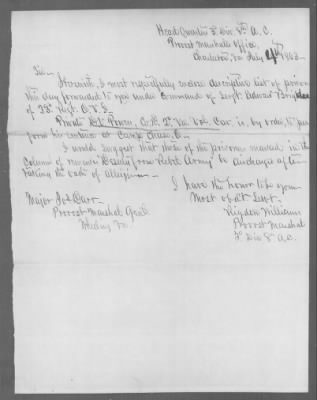 Head Quarters 2d Div. 8th A. C.
Provost Marshal's Office,
Charleston, Va July 4th 1863
Sir—
Herewith, I most respectfully enclose descriptive list of prisoners
this day forwarded to you under command of Sergt. Adnirat
of 28th Regt. O. V. I.
Private 2d Va. Vol. Cav. is, by order, to per-
form his sentence at Camp Chase, O—
I would suggest that those of the prisoners marked, in the
Column of remarks "Deserter from Rebel Army" be discharged after
taking the oath of allegiance—
I have the honor to be your
Most ob't Servt.
Rigdon Williams
Provost Marshal
2d Div 8th A. C.
Major Jos. Darr
Provost Marshal Genl.
Wheeling Va.